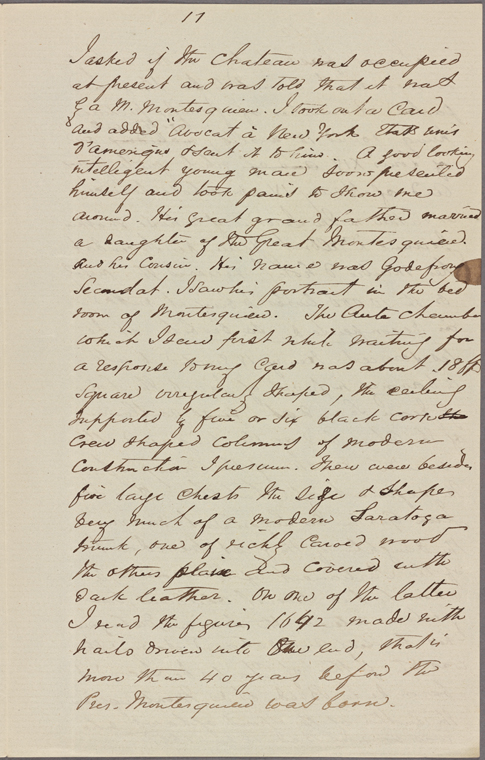 17
I asked if the Chateau was occupied
at present and was told that it was
by a M. Montesquieu. I took out a Card
and added "Avocat à New York Etats Unis
d'amerique & sent it to him. A good looking
intelligent young man soon presented
himself and took pains to show me
around. His great grand father married
a daughter of the Great Montesquieu
and his Cousin. His name was Godefroy
Secondat. I saw his portrait in the bed
room of Montesquieu. The Ante Chamber
which I saw first while waiting for
a response to my Card was about 18 ft
square irregularly shaped, the ceiling
supported by five or six black cork
crew shaped columns of modern
construction I presume. There were besides
five large chests the size & shape
very much of a modern Saratoga
trunk, one of richly carved wood
the others plain and covered with
dark leather. On one of the latter
I read the figures 1642 made with
nails driven into the end, that is
more than 40 years before the
Pres. Montesquieu was born.